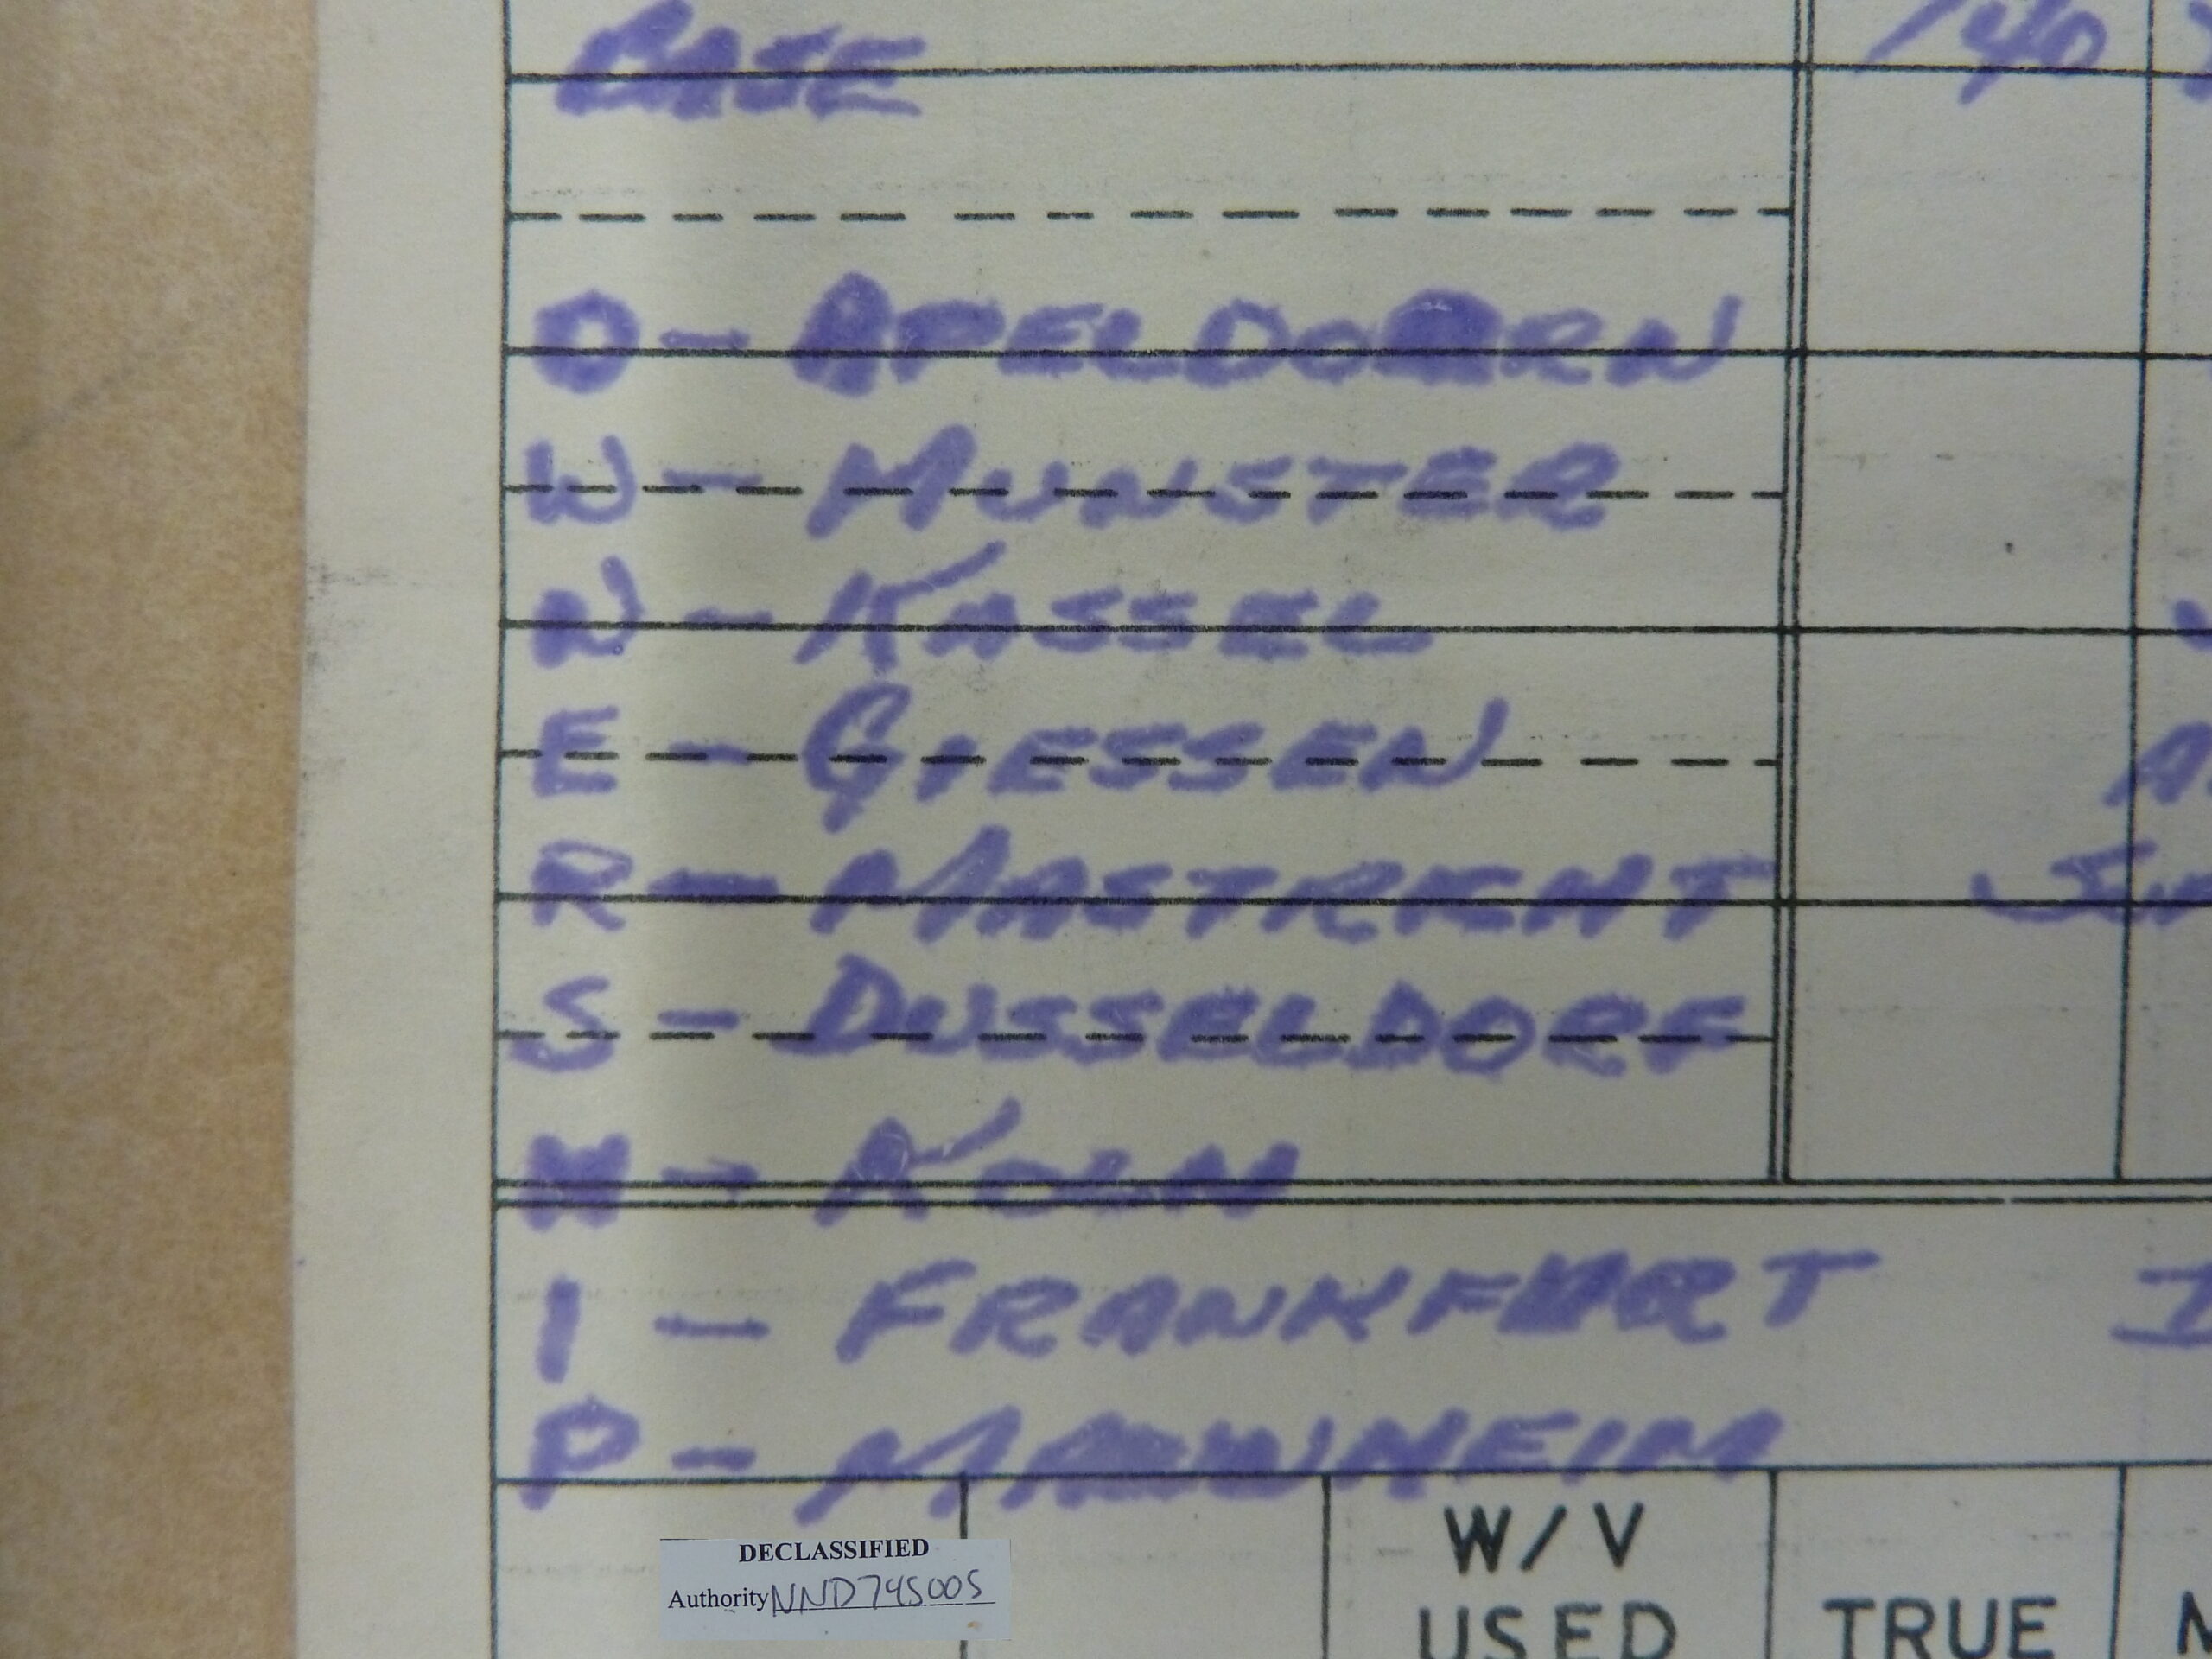 BASE
O - APELDOORN
W - MUNSTER
N - KASSEL
E - GIESSEN
R - MASTRICHT
S - DUSSELDORF
H - KOLN
I - FRANKFURT I
P - MANNHEIM
W/V
USED
TRUE
DECLASSIFIED
Authority NND745005